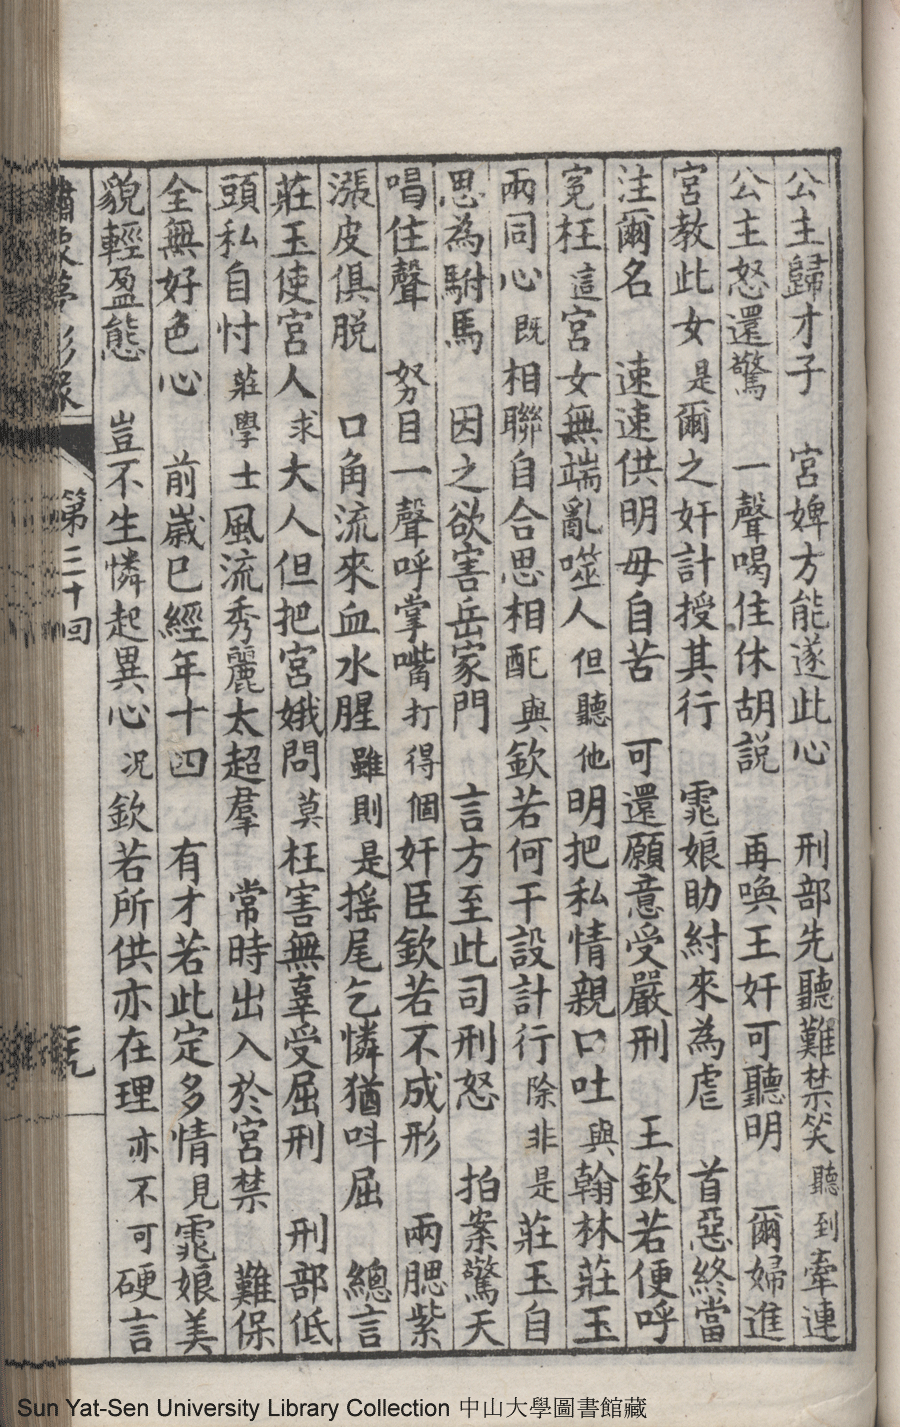 公主歸才子　宮婢方能遂此心　刑部先聽難禁笑聽到牽連
公主怒還驚　一聲喝住休胡説　再喚王奸可聽明　爾婦進
宮教此女是爾之奸計授其行　霓娘助紂來為虐　首惡終當
注爾名　速速供明毋自苦　可還願意受嚴刑　王欽若便呼
寃枉這宮女無端亂噬人但聽他明把私情親口吐與翰林莊玉
兩同心既相聯自合思相配與欽若何干設計行除非是莊玉自
思為駙馬　因之欲害岳家門　言方至此司刑怒　拍案驚天
唱住聲　努目一聲呼掌嘴打得個奸臣欽若不成形　兩腮紫
漲皮俱脱　口角流來血水腥雖則是搖尾乞憐猶呌屈　總言
莊玉使宮人求大人但把宮娥問莫枉害無辜受屈刑　刑部低
頭私自忖莊學士風流秀麗太超羣　常時出入於宮禁　難保
全無好色心　前歲已經年十四　有才若此定多情見霓娘美
貌輕盈態　豈不生憐起異心况欽若所供亦在理亦不可硬言
第三十回